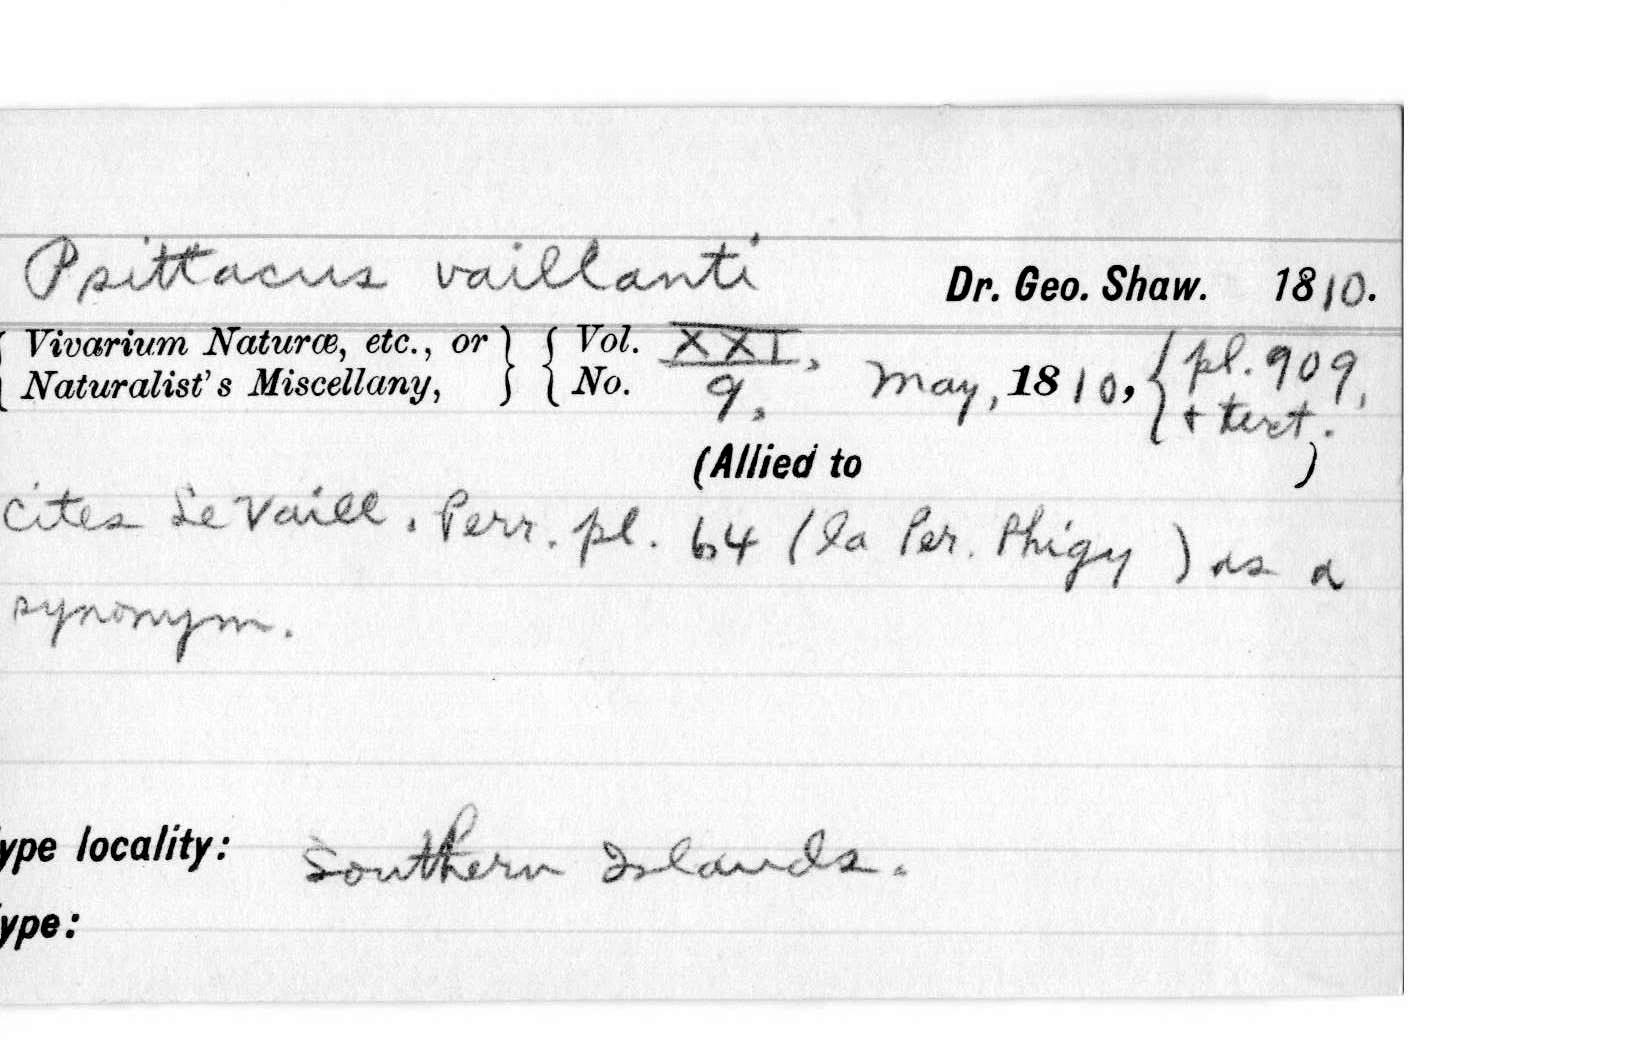 Psittacus vaillanti Dr. Geo. Shaw. 1810.
{ Vivarium Naturæ, etc., or } { Vol. XXI, May, 1810, { pl. 909,
{ Naturalist's Miscellany, } { No. 9, { + text.
(Allied to )
cites Le Vaill. Perr. pl. 64 (la Per. Phigy) as a
synonym.
ype locality: Southern Islands.
ype: